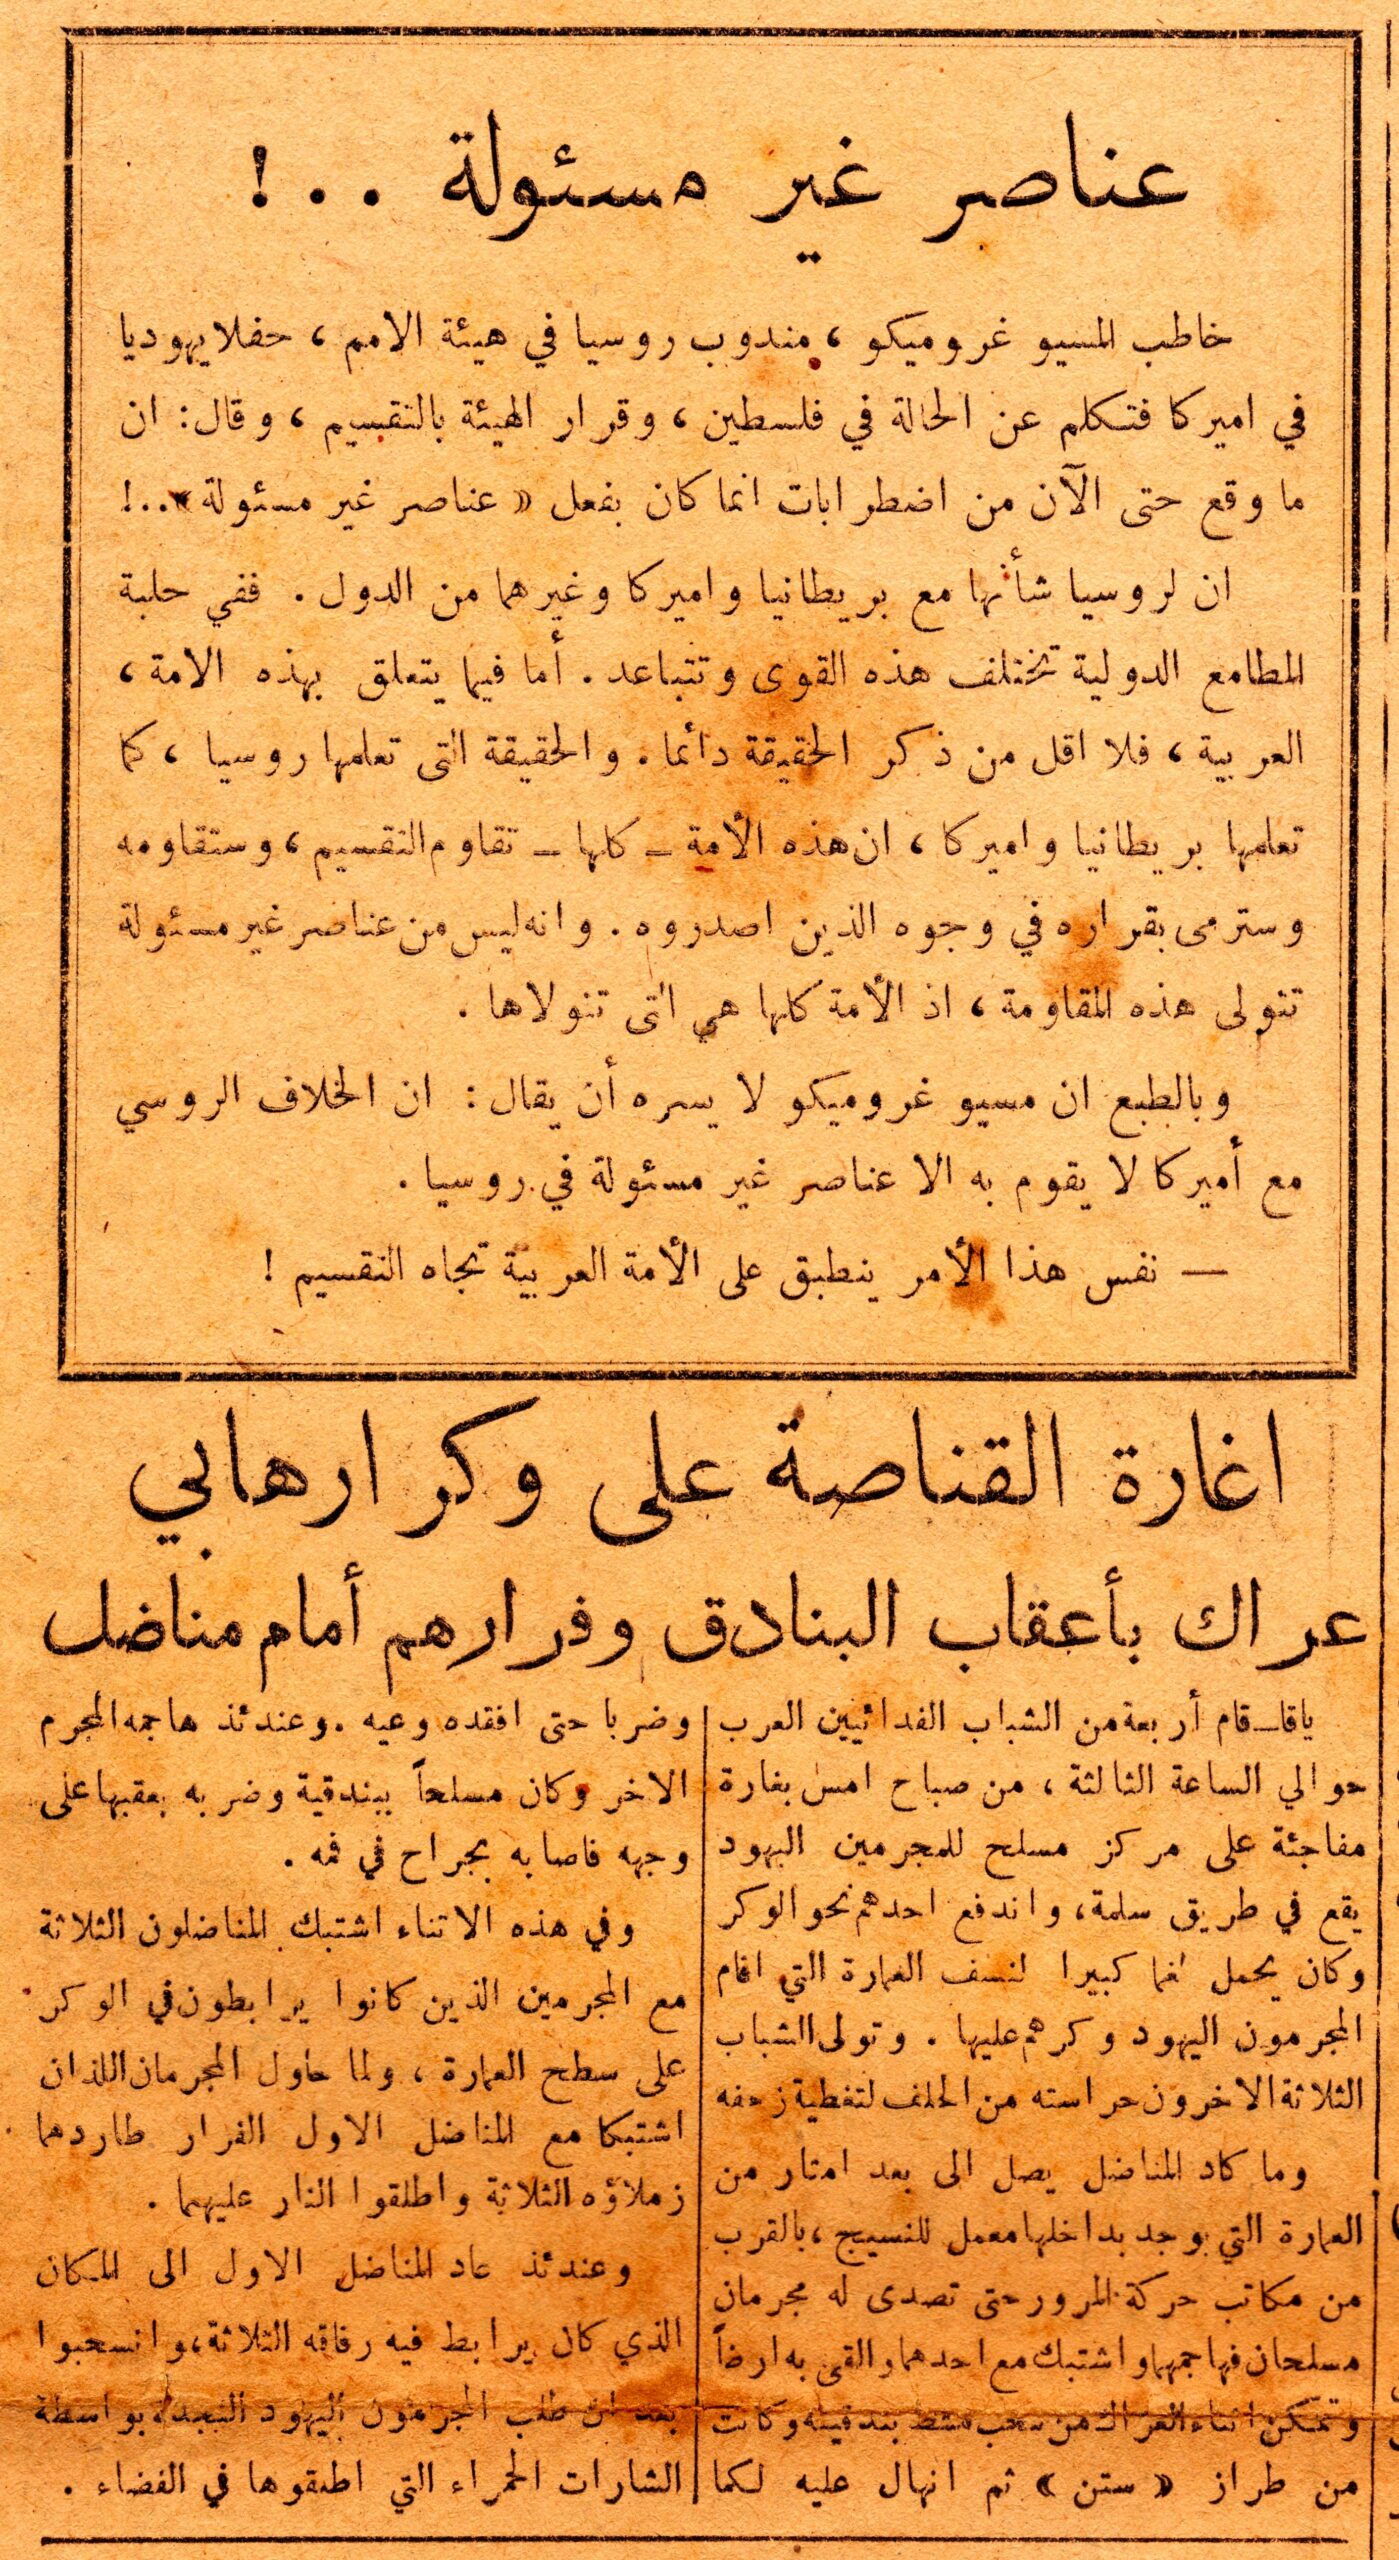 عناصر غير مسئولة ..!
خاطب المسيو غروميكو ، مندوب روسيا في هيئة الامم ، حفلا يهوديا
في اميركا فتكلم عن الحالة في فلسطين ، وقرار الهيئة بالتقسيم ، وقال : ان
ما وقع حتى الآن من اضطرابات انما كان بفعل « عناصر غير مسئولة » ..!
ان لروسيا شأنها مع بريطانيا واميركا وغيرهما من الدول . ففي حلبة
المطامع الدولية تختلف هذه القوى وتتباعد . أما فيما يتعلق بهذه الامة ،
العربية ، فلا اقل من ذكر الحقيقة دائما . والحقيقة التى تعلمها روسيا ، كما
تعلمها بريطانيا واميركا ، ان هذه الأمة ـ كلها ـ تقاوم التقسيم ، وستقاومه
وسترمى بقراره في وجوه الذين اصدروه . وانه ليس من عناصر غير مسئولة
تتولى هذه المقاومة ، اذ الأمة كلها هي التى تتولاها .
وبالطبع ان مسيو غروميكو لا يسره أن يقال : ان الخلاف الروسي
مع أميركا لا يقوم به الا عناصر غير مسئولة في روسيا .
— نفس هذا الأمر ينطبق على الأمة العربية تجاه التقسيم !
اغارة القناصة على وكر ارهابي
عراك بأعقاب البنادق وفرارهم أمام مناضل
يافا ـ قام أربعة من الشباب الفدائيين العرب
حوالي الساعة الثالثة ، من صباح امس بغارة
مفاجئة على مركز مسلح للمجرمين اليهود
يقع في طريق سلمة ، واندفع احدهم نحو الوكر
وكان يحمل لغما كبيرا لنسف العمارة التي اقام
المجرمون اليهود وكرهم عليها . وتولى الشباب
الثلاثة الاخرون حراسته من الخلف لتغطية زحفه
وما كاد المناضل يصل الى بعد امتار من
العمارة التي يوجد بداخلها معمل للنسيج ، بالقرب
من مكاتب حركة المرور حتى تصدى له مجرمان
مسلحان فهاجمهما واشتبك مع احدهما والقى به ارضاً
وتمكن اثناء العراك من سحب مشط بندقيته وكانت
من طراز « ستن » ثم انهال عليه لكما
وضربا حتى افقده وعيه . وعندئذ هاجمه المجرم
الاخر وكان مسلحاً ببندقية وضربه بعقبها على
وجهه فاصابه بجراح في فمه .
وفي هذه الاثناء اشتبك المناضلون الثلاثة
مع المجرمين الذين كانوا يرابطون في الوكر
على سطح العمارة ، ولما حاول المجرمان اللذان
اشتبكا مع المناضل الاول الفرار طاردهما
زملاؤه الثلاثة واطلقوا النار عليهما .
وعندئذ عاد المناضل الاول الى المكان
الذي كان يرابط فيه رفاقه الثلاثة ، وانسحبوا
بعد ان طلب المجرمون اليهود النجدة بواسطة
الشارات الحمراء التي اطلقوها في الفضاء .